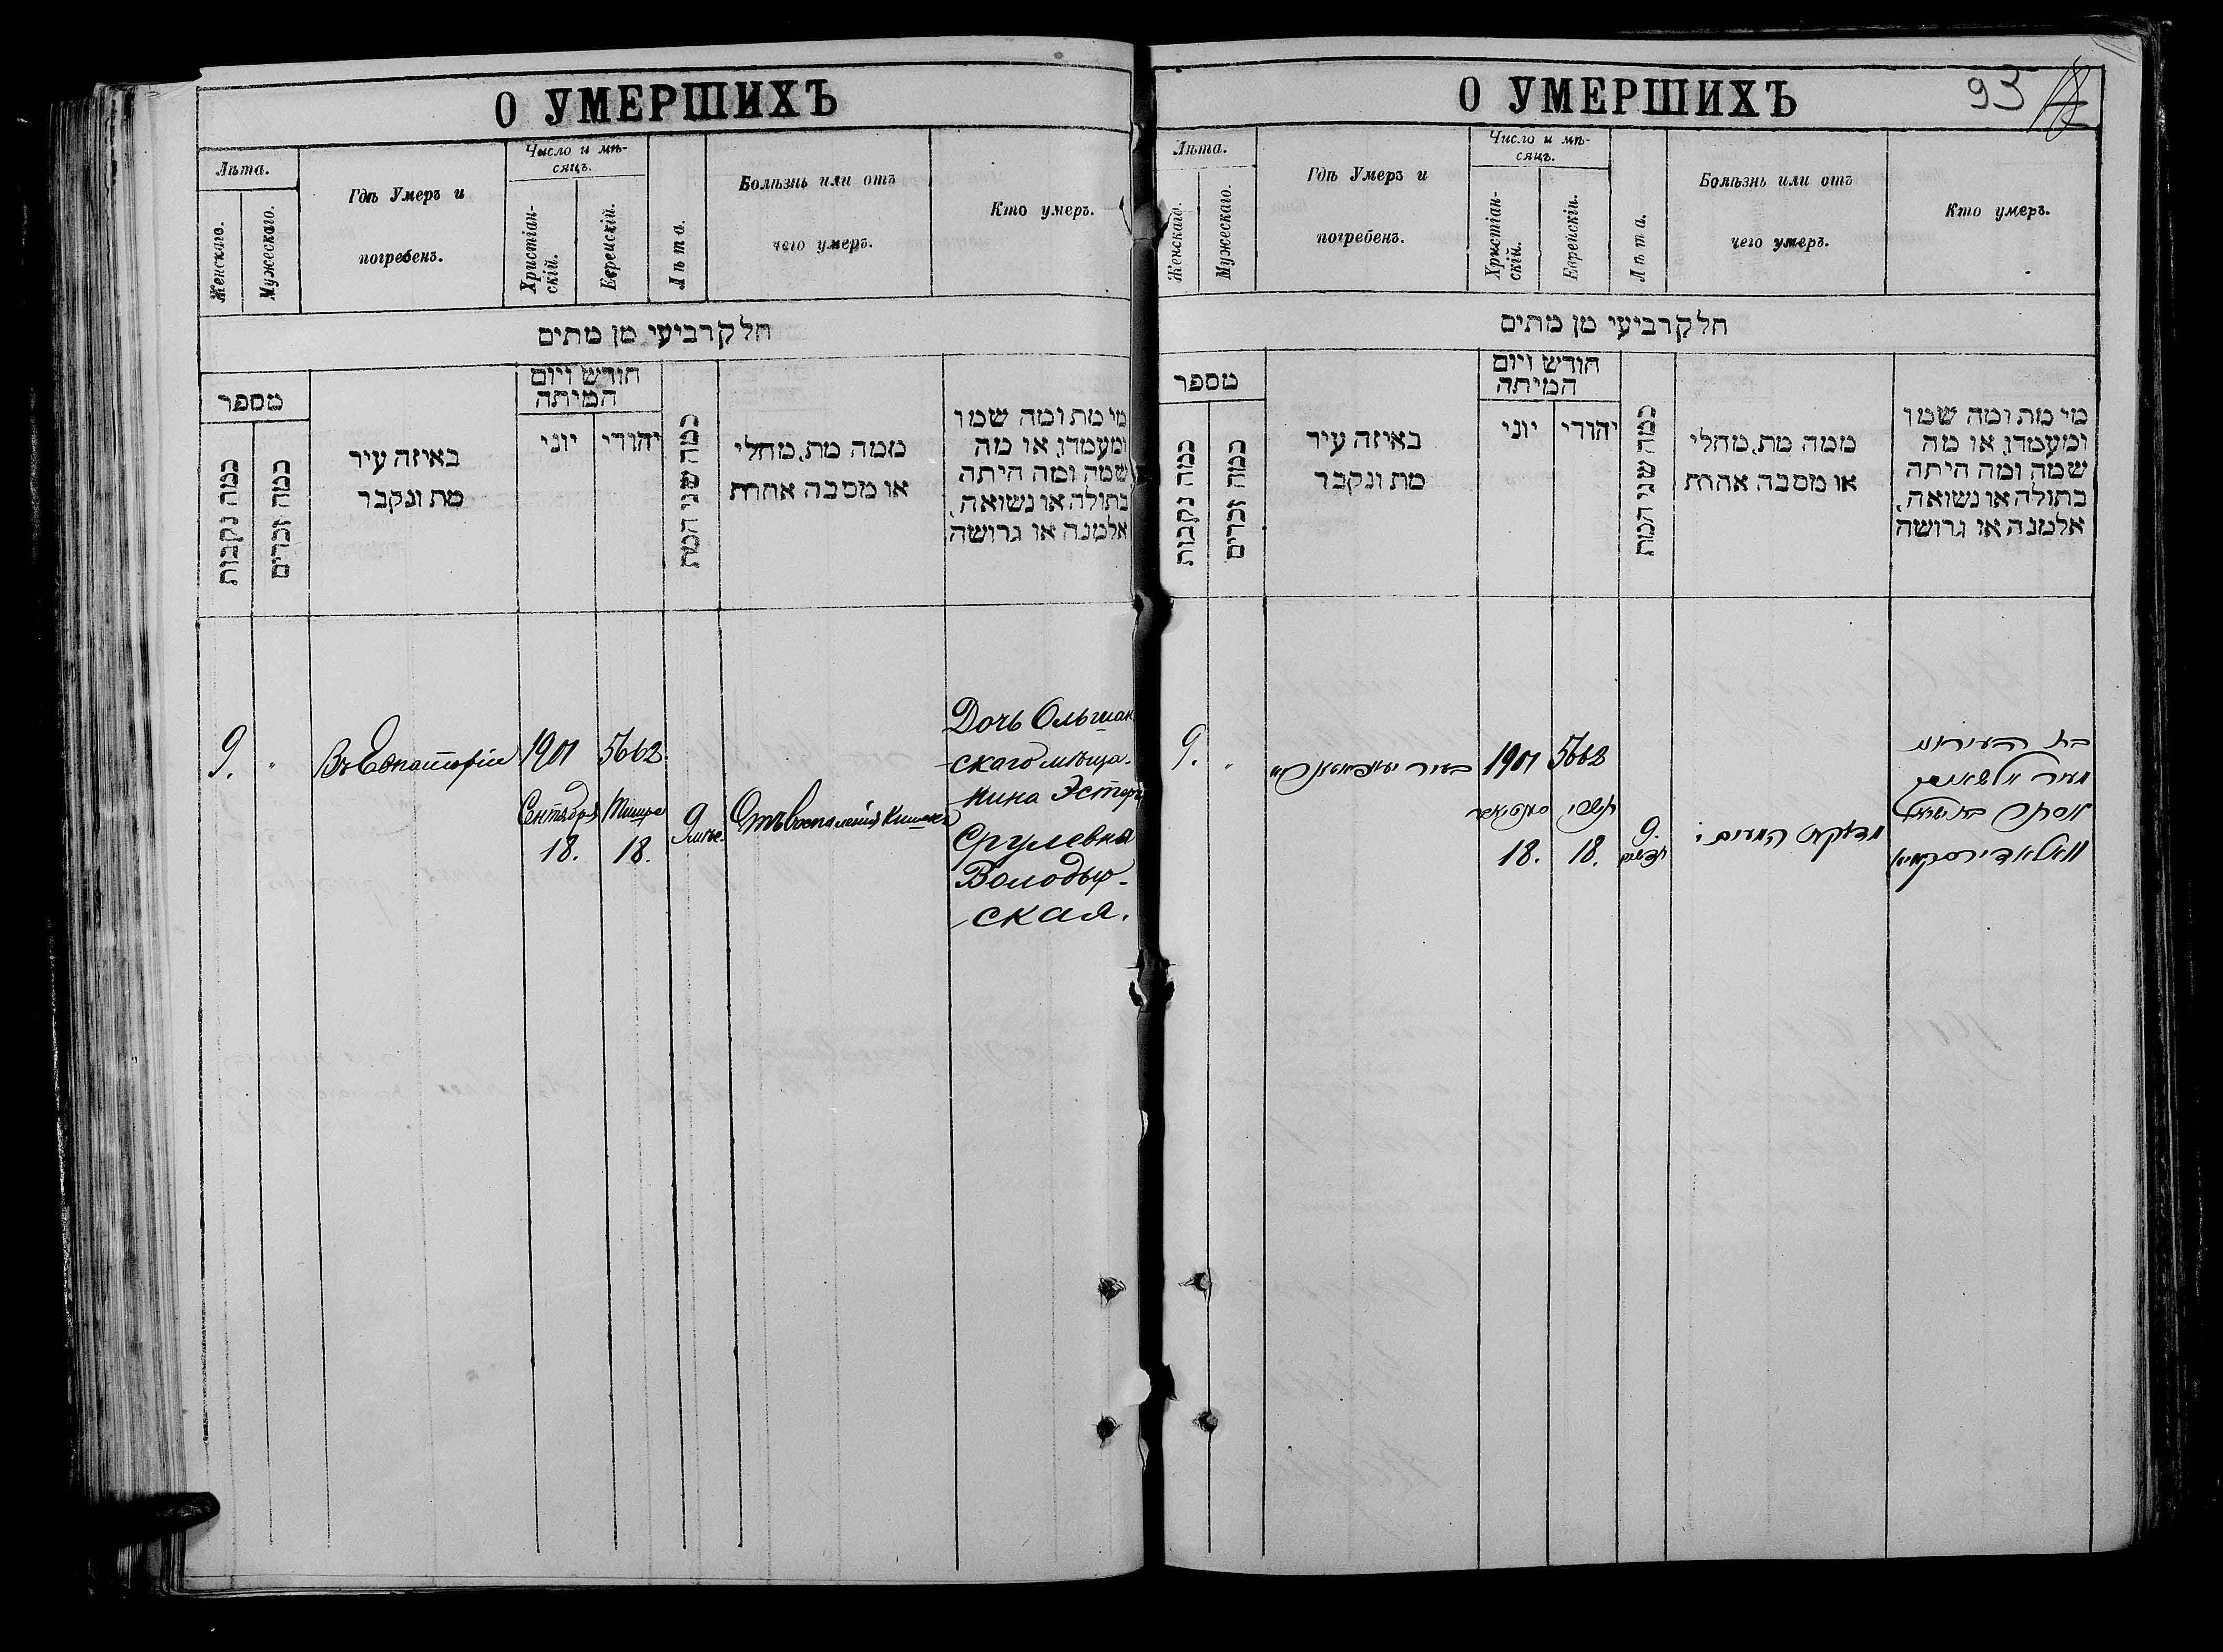 О УМЕРШИХЪ
Лѣта.
Женскаго.
Мужескаго.
Гдѣ Умеръ и
погребенъ.
Число и мѣ-
сяцъ.
Христіан-
скій.
Еврейскій.
Лѣта.
Болѣзнь или отъ
чего умеръ.
Кто умеръ.
חלק רביעי מן מתים
מספר
כמה נקבות
כמה זכרים
באיזה עיר
מת ונקבר
חודש ויום
המיתה
יוני
יהודי
כמה שני המת
ממה מת, מחלי
או מסבה אחרת
מי מת ומה שמו
ומעמדו, או מה
שמה ומה היתה
בתולה או נשואה,
אלמנה או גרושה
9.
Въ Евпаторіи
1901
Сентября
18.
5662
Тишре
18.
9 мѣс.
Отъ воспаленія кишекъ
Дочь Ольшан
скаго мѣща-
нина Эстеръ
Срулевна
Володыр-
ская.
О УМЕРШИХЪ
93
Лѣта.
Женскаго.
Мужескаго.
Гдѣ Умеръ и
погребенъ.
Число и мѣ-
сяцъ.
Христіан-
скій.
Еврейскій.
Лѣта.
Болѣзнь или отъ
чего умеръ.
Кто умеръ.
חלק רביעי מן מתים
מספר
כמה נקבות
כמה זכרים
באיזה עיר
מת ונקבר
חודש ויום
המיתה
יוני
יהודי
כמה שני המת
ממה מת, מחלי
או מסבה אחרת
מי מת ומה שמו
ומעמדו, או מה
שמה ומה היתה
בתולה או נשואה,
אלמנה או גרושה
9.
בעיר
1901
18.
5662
תשרי
18.
9.
חדשים
מדלקת המעים
בת
מעיר
אסתר בת ישראל
וואלאדירסקייא